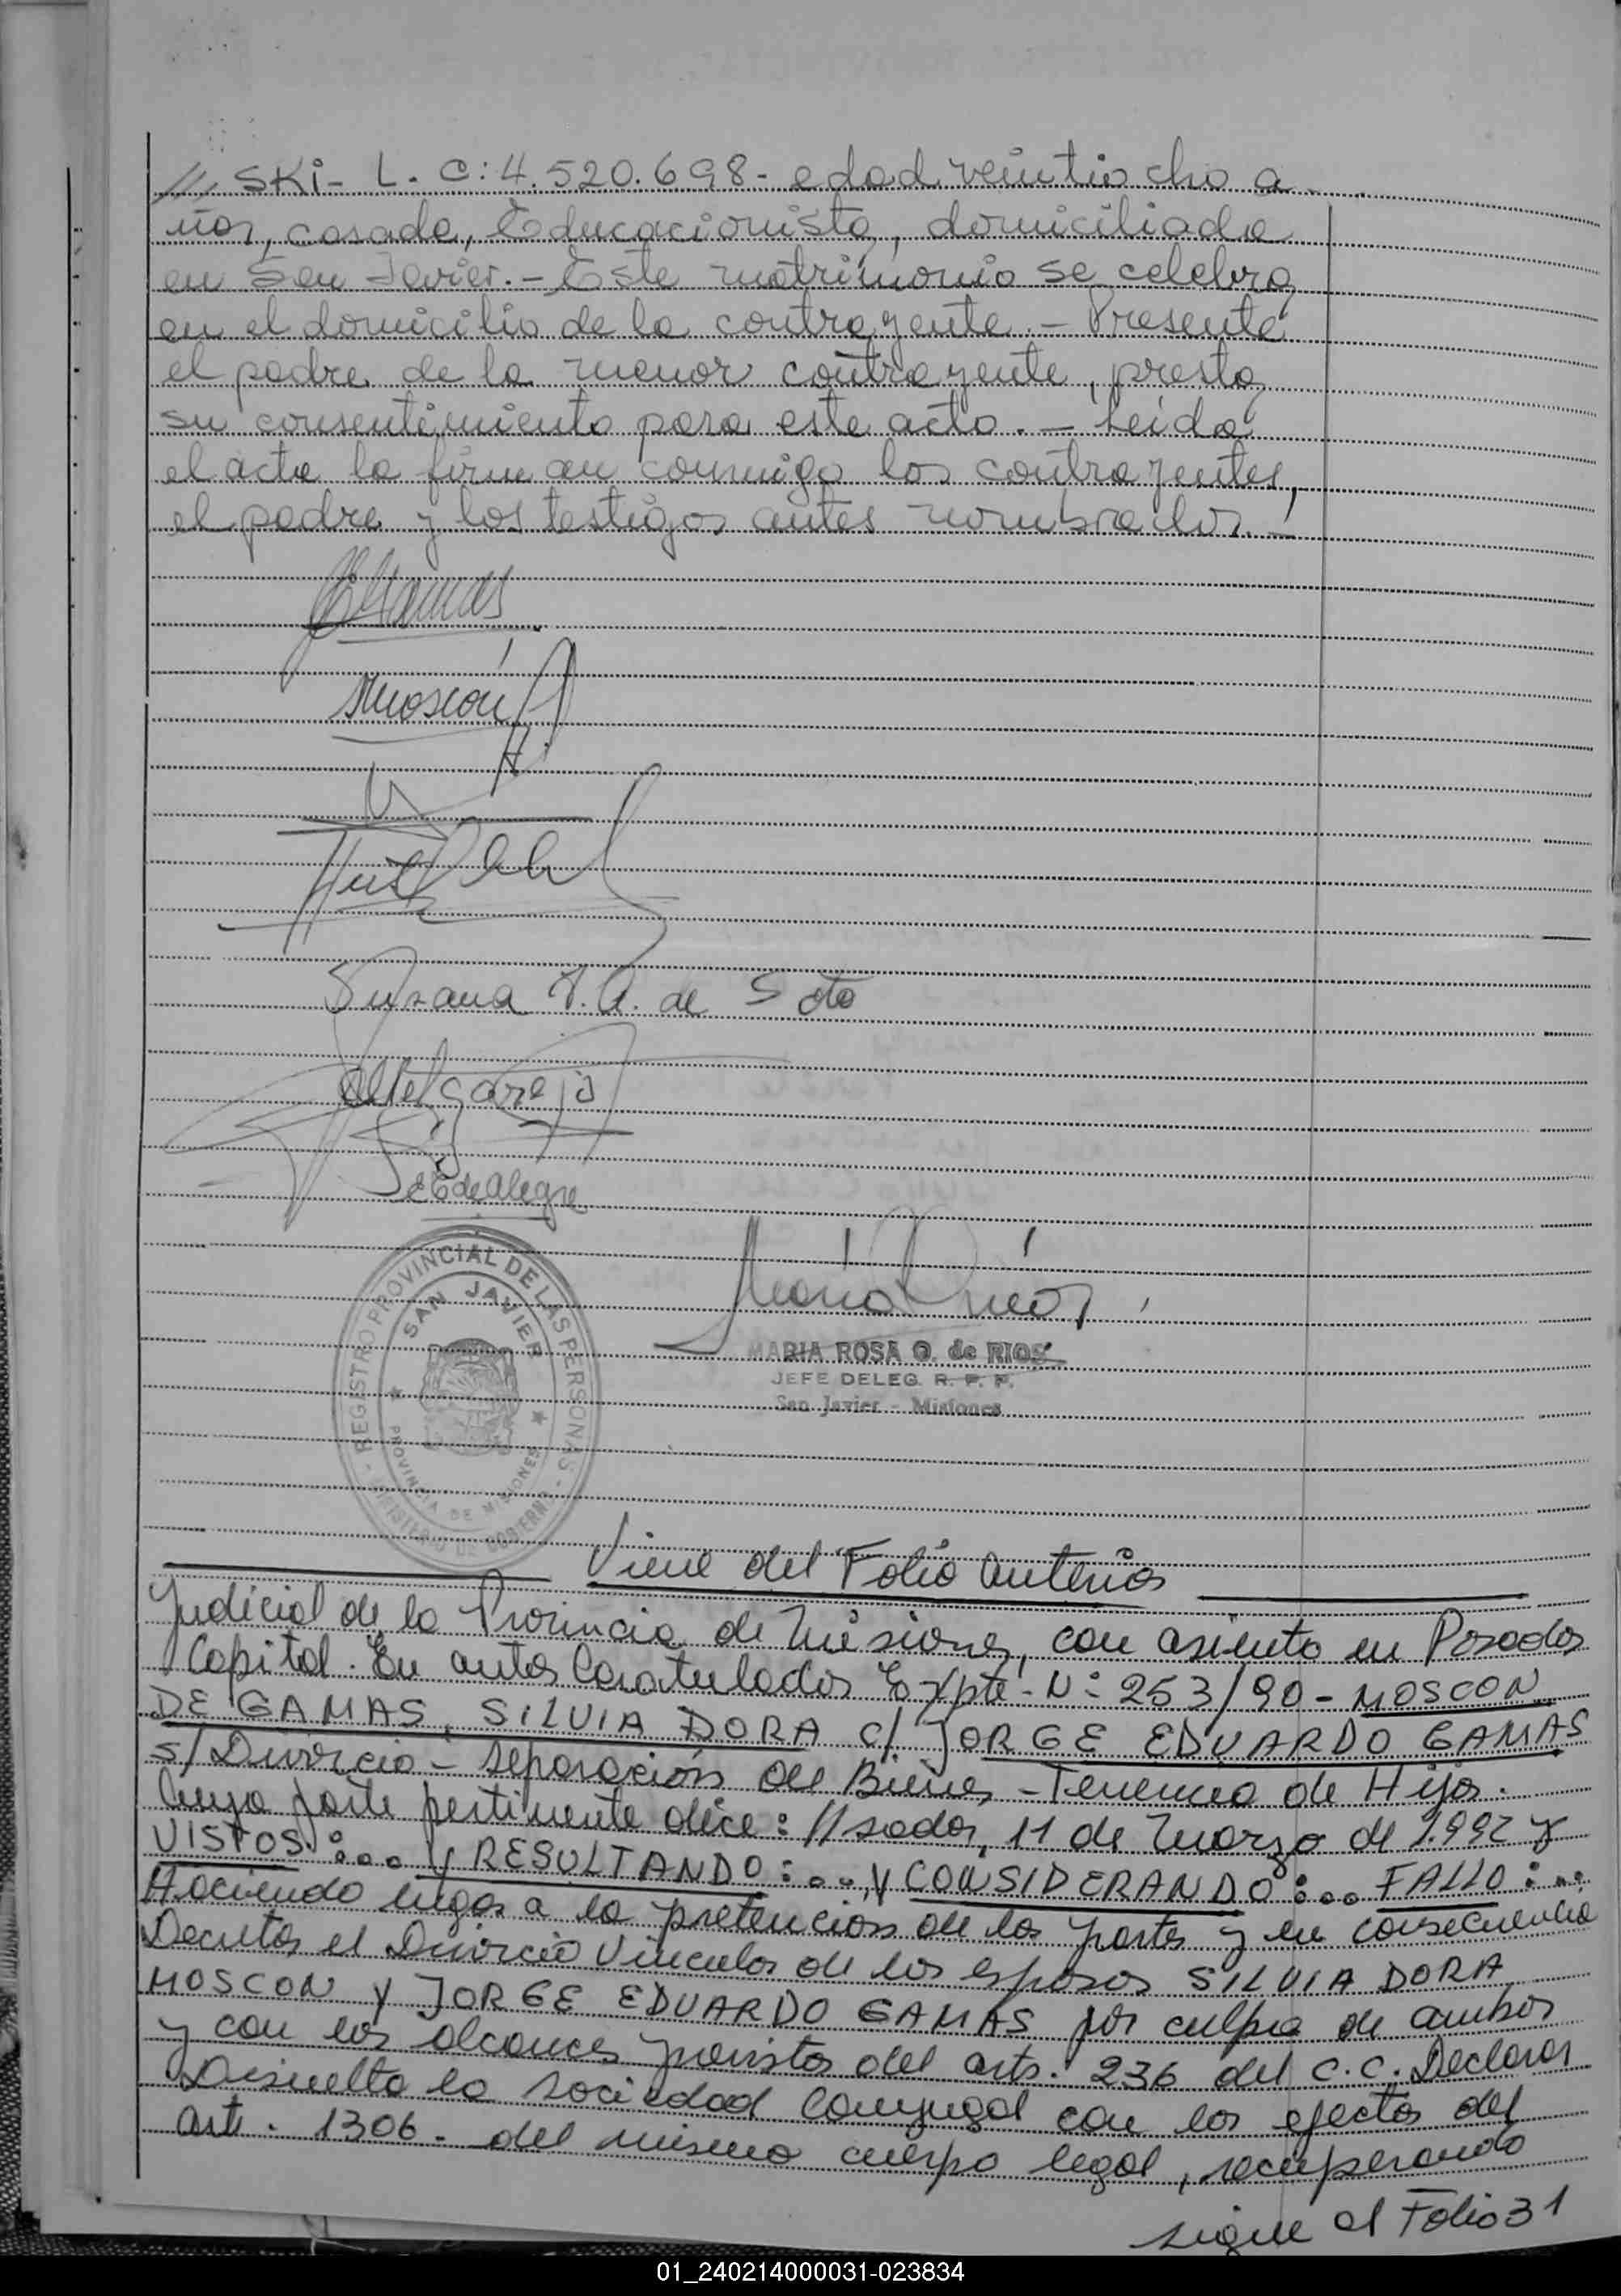 // SKi - L. C: 4.520.698 - edad veintiocho a
ños, casada, Educacionista, domiciliada
en San Javier. - Este matrimonio se celebra
en el domicilio de la contrayente. - Presente
el padre de la menor contrayente, presta
su consentimiento para este acto. - Leida
el acta la firman conmigo los contrayentes,
el padre y los testigos antes nombrados. -
JEGamas
SMoscon
Susana A. de Soto
de Alegre
REGISTRO PROVINCIAL DE LAS PERSONAS - MINISTERIO DE GOBIERNO -
SAN JAVIER
PROVINCIA DE MISIONES
MARIA ROSA O. de RIOS
JEFE DELEG. R. P. P.
San Javier - Misiones
Viene del Folio anterior
Judicial de la Provincia de Misiones, con asiento en Posadas
Capital. En autos Caratulados Expte - Nº 253/90 - MOSCON
DE GAMAS, SILVIA DORA c/ JORGE EDUARDO GAMAS
s/ Divorcio - Separación de Bienes - Tenencia de Hijos.
Cuya parte pertinente dice: //sadas, 11 de Marzo de 1.992 y
VISTOS:... y RESULTANDO:... y CONSIDERANDO:... FALLO:...
Haciendo lugar a la pretencion de las partes y en consecuencia
Decretar el Divorcio Vincular de los esposos SILVIA DORA
MOSCON Y JORGE EDUARDO GAMAS por culpa de ambos
y con los alcances previstos del arts. 236 del C.C. Declarar
Disuelta la sociedad Conyugal con los efectos del
art. 1306 - del mismo cuerpo legal, recuperando
sigue al Folio 31
01_240214000031-023834